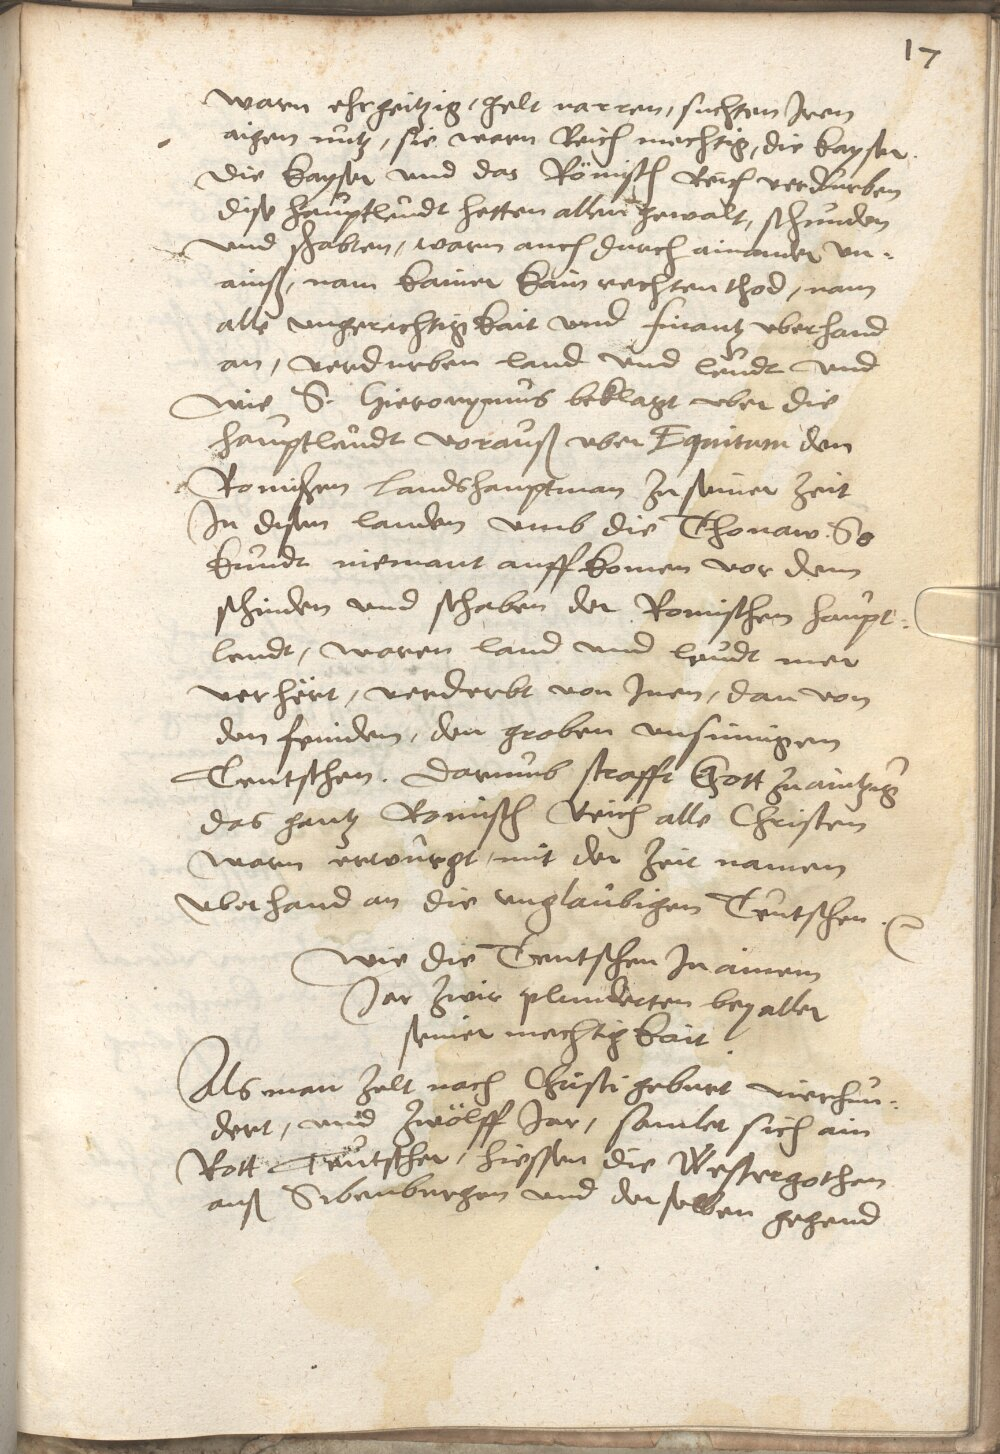 17
warn ehrgeitzig, gelt narren, suchten Iren
aigen nutz, sie warn Reich mechtig, die kayser
die kayser und das Römisch Reich verdurben
dise hauptleudt hetten allen gewalt, schunden
und schabten, warn auch durch ainander un-
ainß, nam kainer kain rechten thod, nam
alle ungerechtigkait und finantz uberhand
an, verdurben land und leudt und
wie S. Hieronymus beklagt uber die
hauptleudt vorauß uber Equitum den
Romischen landshauptman zu seiner zeit
In disen landen umb die Thonaw. So
kundt niemant auffkomen vor dem
schinden und schaben der Romischen haupt-
leudt, waren land und leudt mer
verhört, verderbt von Inen, dan von
den feinden, den groben unsinnigen
Teutschen. Darumb strafft Gott zu aintzig
das gantz Romisch Reich alle Christen
warn erwurgt, mit der zeit namen
uberhand an die unglaubigen Teutschen.
Wie die Teutschen In ainem
Jar zwir plunderten bey aller
seiner mechtigkait.
Als man zelt nach Christi geburt vierhun-
dert, und zwölff Jar, samlet sich ain
Rott Teutscher, hiessen die Westergothen
auß Sibenburgen und der selben gegend